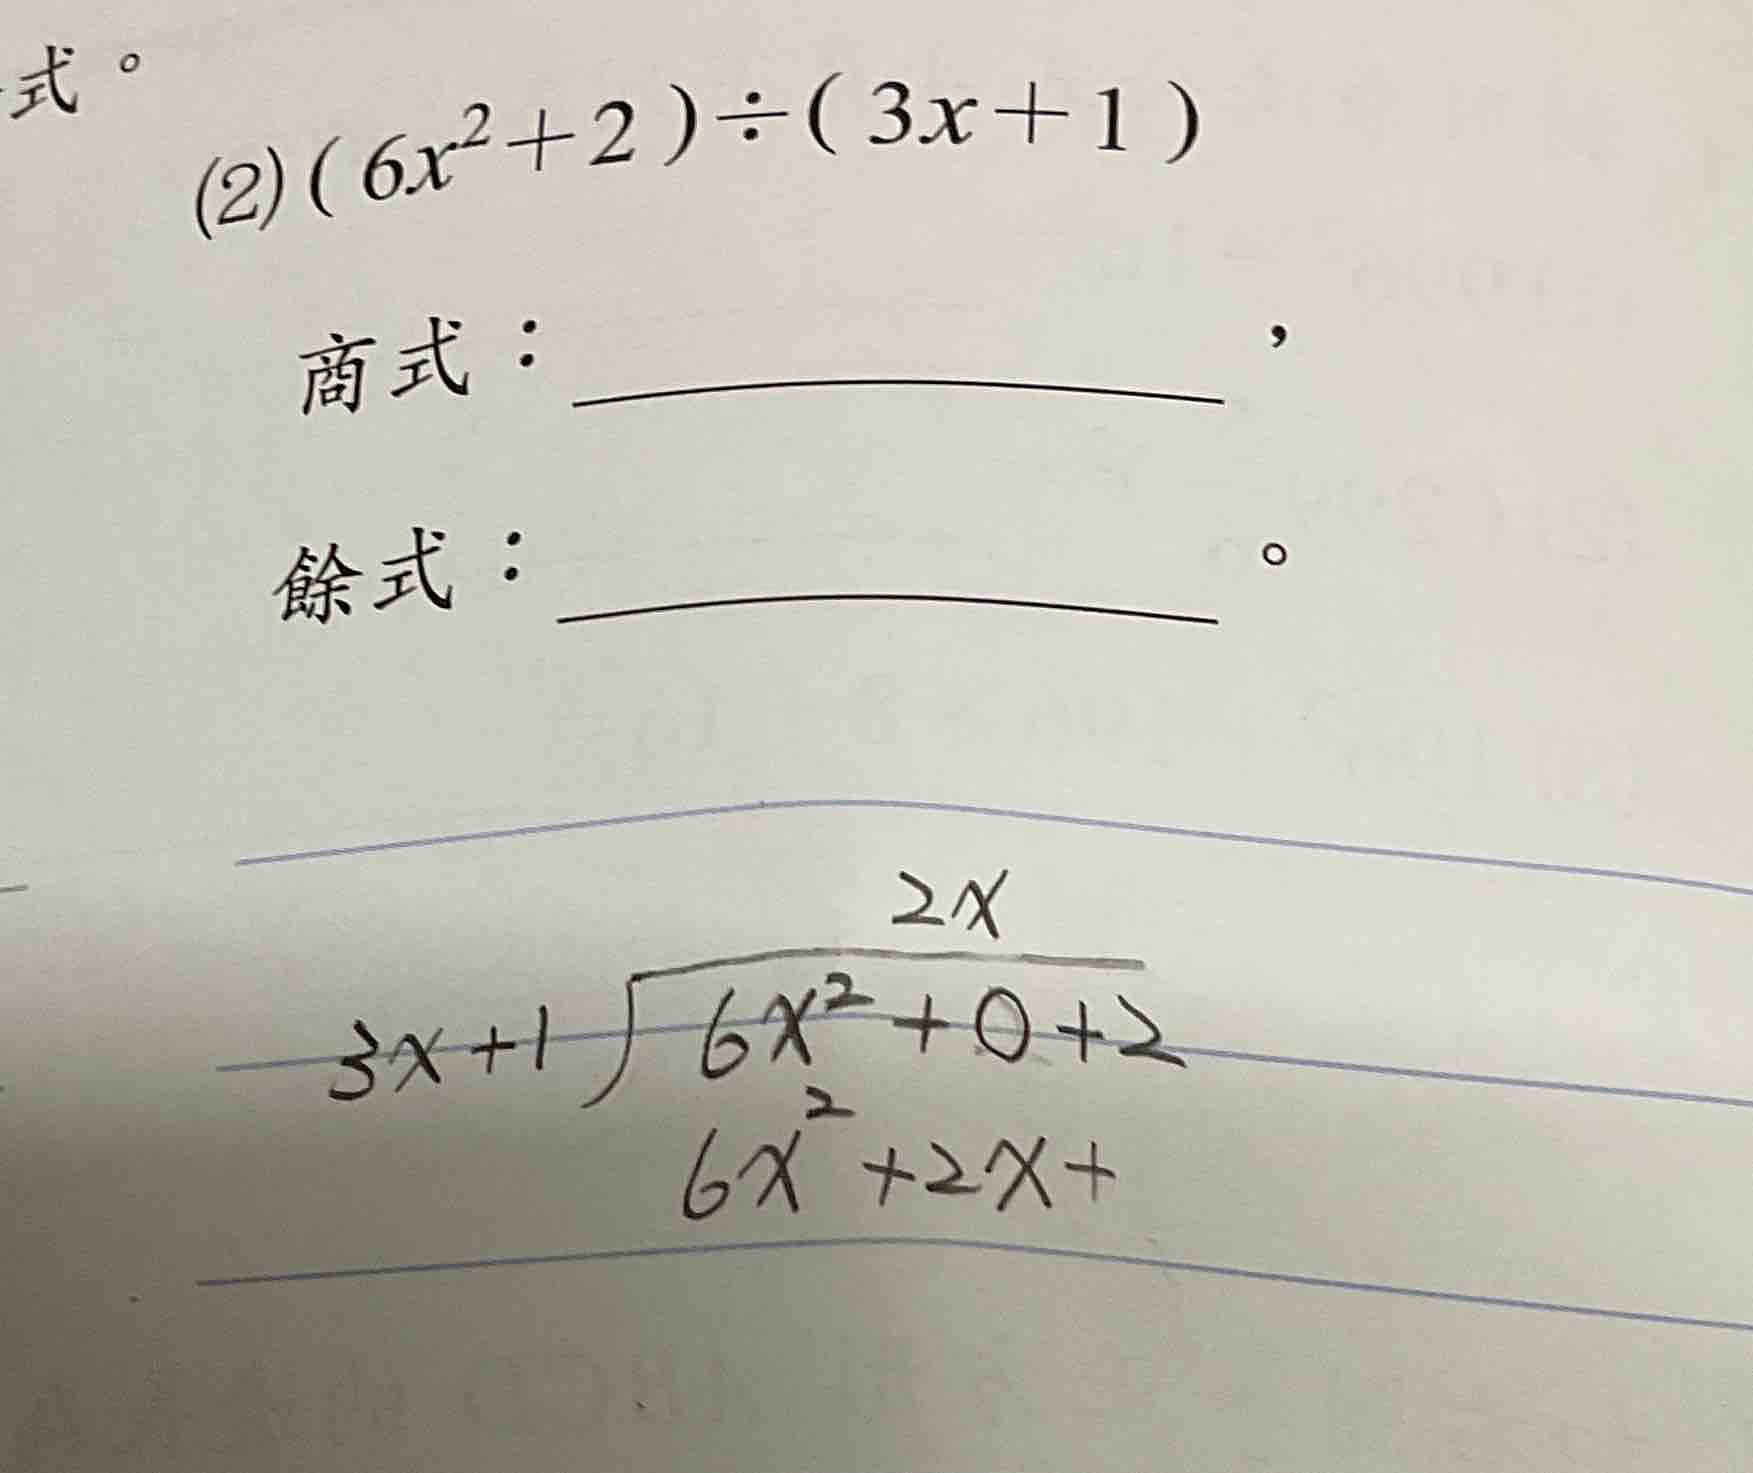 式。
(2)(6x²+2)÷(3x+1)
商式：＿＿＿＿＿＿，
餘式：＿＿＿＿＿＿。
2x
3x+1 6x²+0+2
6x²+2x+